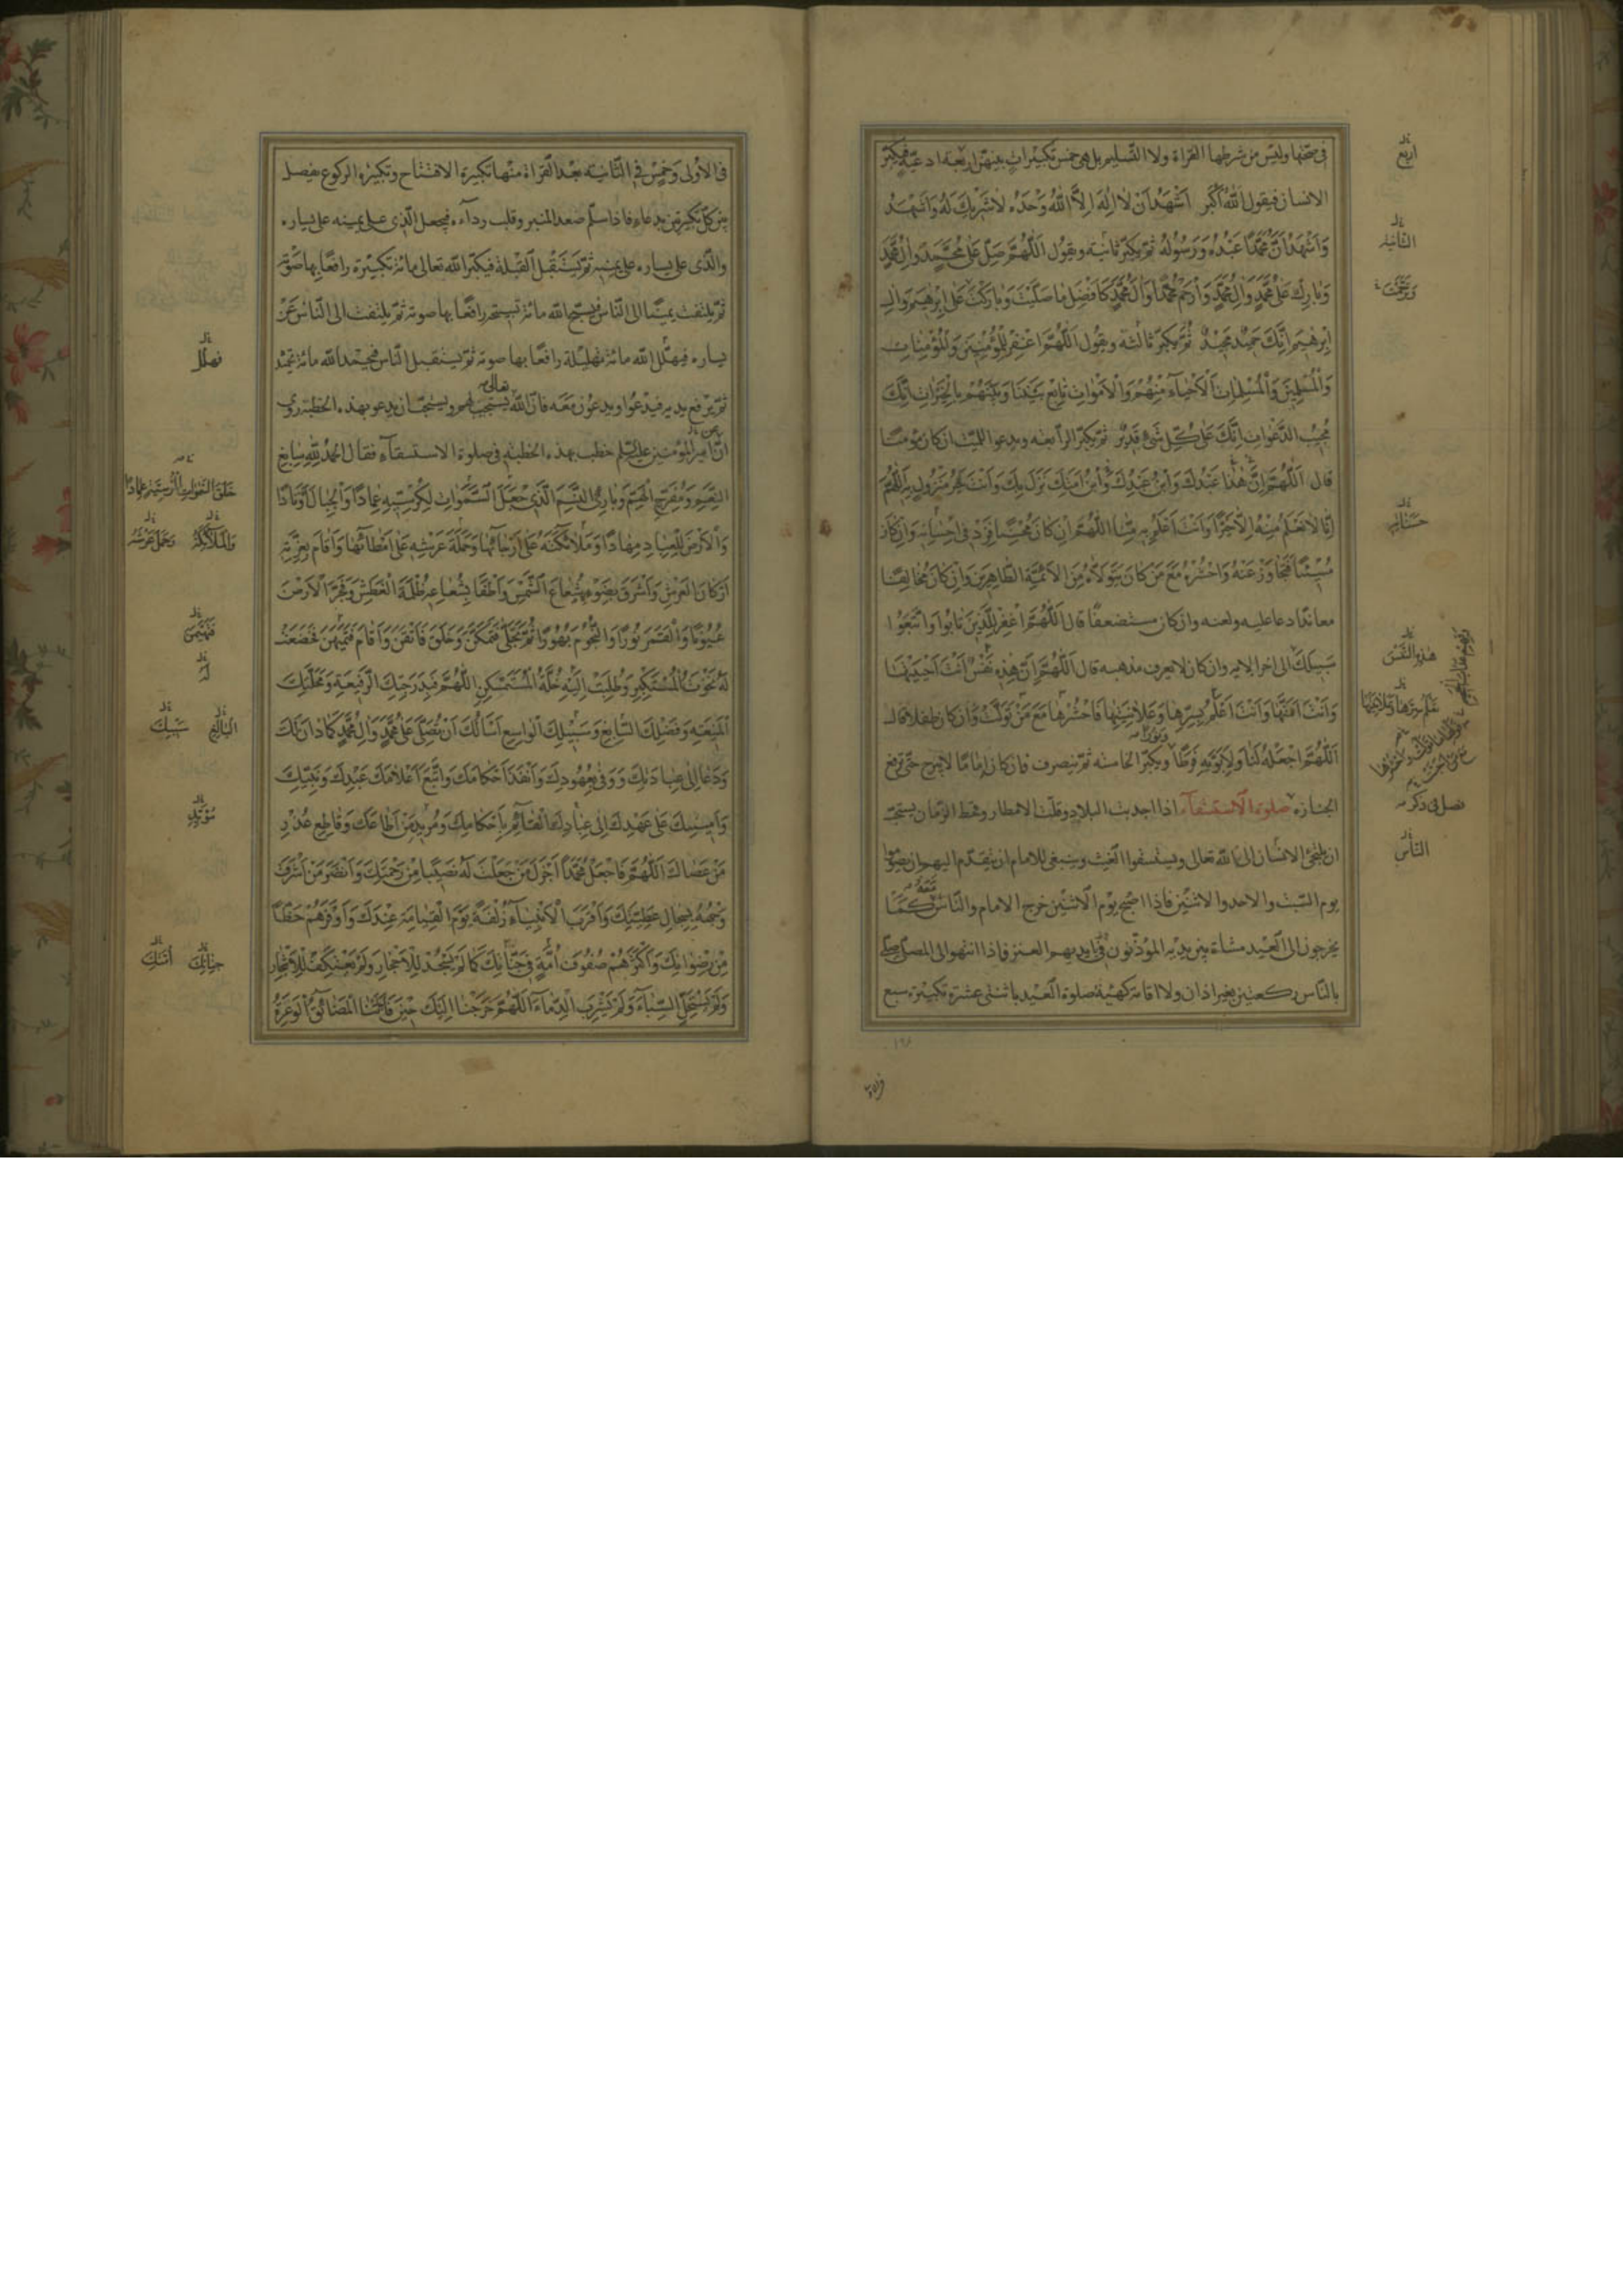 في صحتها وليس من شرطها القراة ولا التسليم بل هي خمس تكبيرات بينهن اربعة ادعية فيكبر
الانسان فيقول اَللّٰهُ اَكْبَر اَشْهَدُ اَنْ لا اِلٰهَ اِلَّا اللّٰهُ وَحْدَهُ لاشَرِيكَ لَهُ
وَاَشْهَدُ اَنَّ مُحَمَّدًا عَبْدُهُ وَرَسُولُهُ ثم يكبر ثانية ويقول اَللّٰهُمَّ صَلِّ عَلٰى مُحَمَّدٍ وَاٰلِ مُحَمَّدٍ
وَبارِك عَلٰى مُحَمَّدٍ وَاٰلِ مُحَمَّدٍ وَارْحَمْ مُحَمَّدًا وَاٰلَ مُحَمَّدٍ كَاَفْضَلِ ما صَلَّيْتَ وَبارَكْتَ عَلٰى اِبْرٰهيمَ وَاٰلِ
اِبْرٰهيمَ اِنَّكَ حَمِيدٌ مَجِيدٌ ثم يكبر ثالثة ويقول اَللّٰهُمَّ اغْفِرْ لِلْمُؤْمِنِينَ وَالْمُؤْمِناتِ
وَالْمُسْلِمينَ وَالْمُسْلِماتِ اَلْاَحْياءِ مِنْهُمْ وَالْاَمْواتِ تابِعْ بَيْنَنا وَبَيْنَهُمْ بِالْخَيْراتِ اِنَّكَ
مُجيبُ الدَّعَواتِ اِنَّكَ عَلٰى كُلِّ شَئٍ قَديرٌ ثم يكبر الرابعة ويدعو للميت ان كان مؤمنا
قال اَللّٰهُمَّ اِنَّ هٰذا عَبْدُكَ وَابْنُ عَبْدِكَ وَابْنُ اَمَتِكَ نَزَلَ بِكَ وَاَنْتَ خَيْرُ مَنْزُولٍ بِهِ اَللّٰهُمَّ
اِنّا لا نَعْلَمُ مِنْهُ اِلّا خَيْرًا وَاَنْتَ اَعْلَمُ بِهِ مِنّا اَللّٰهُمَّ اِنْ كانَ مُحْسِنًا فَزِدْ فى اِحْسانِهِ وَاِنْ كانَ
مُسيئًا فَتَجاوَزْ عَنْهُ وَاحْشُرْهُ مَعَ مَنْ كانَ يَتَوَلّاهُ مِنَ الْاَئِمَّةِ الطّاهِرينَ وان كان مخالفا
معاندا دعا عليه ولعنه وان كان مستضعفا قال اَللّٰهُمَّ اغْفِرْ لِلَّذينَ تابُوا وَاتَّبَعُوا
سَبيلَكَ الى اخر الاية وان كان لا يعرف مذهبه قال اَللّٰهُمَّ اِنَّ هٰذِهِ نَفْسٌ اَنْتَ اَحْيَيْتَها
وَاَنْتَ اَمَتَّها وَاَنْتَ اَعْلَمُ بِسِرِّها وَعَلانِيَتِها فَاحْشُرْها مَعَ مَنْ تَوَلَّتْ وان كان طفلا قال
اَللّٰهُمَّ اجْعَلْهُ لَنا وَلِاَبَوَيْهِ فَرَطًا ويكبر الخامسة ثم ينصرف فان كان اماما لا يبرح حتى ترفع
الجنازة صلوة الاستسقاء اذا اجدبت البلاد وقلت الامطار وقحط الزمان يستحب
يوم السبت والاحد والاثنين فاذا اصبح يوم الاثنين خرج الامام والناس كما
يخرجون الى العيد مشاة بين يديه المؤذنون في ايديهم العنز فاذا انتهوا الى المصلى صلى
بالناس ركعتين بغير اذان ولا اقامة كهيئة صلوة العيد باثنتي عشرة تكبيرة سبع
اربع
الثانية
وترحمت
هذه النفس
الناس
في الاولى وخمس في الثانية بعد القراة منها تكبيرة الافتتاح وتكبيرة الركوع يفصل
بين كل تكبيرتين بدعاء فاذا سلم صعد المنبر وقلب رداءه فيجعل الذي على يمينه على يساره
والذي على يساره على يمينه ثم يستقبل القبلة فيكبر الله تعالى مائة تكبيرة رافعا بها صوته
ثم يلتفت يمينا الى الناس فيسبح الله مائة تسبيحة رافعا بها صوته ثم يلتفت الى الناس عن
يساره فيهلل الله مائة تهليلة رافعا بها صوته ثم يستقبل الناس فيحمد الله مائة تحميد
ثم يرفع يديه فيدعو ويدعون معه فان الله تعالى يستجيب لهم ويستحب ان يدعو بهذه الخطبة روي
ان امير المؤمنين عليه السلم خطب بهذه الخطبة في صلوة الاستسقاء فقال اَلْحَمْدُ لِلّٰهِ سابِغِ
النِّعَمِ وَمُفَرِّجِ الْهَمِّ وَبارِئِ النَّسَمِ الَّذى جَعَلَ السَّمٰواتِ لِكُرْسِيِّهِ عِمادًا وَالْجِبالَ اَوْتادًا
وَالْاَرْضَ لِلْعِبادِ مِهادًا وَمَلائِكَتَهُ عَلٰى اَرْجائِها وَحَمَلَةَ عَرْشِهِ عَلٰى اَمْطائِها وَاَقامَ بِعِزَّتِهِ
اَرْكانَ الْعَرْشِ وَاَشْرَقَ بِضَوْئِهِ شُعاعَ الشَّمْسِ وَاَطْفَأَ بِشُعاعِهِ ظُلْمَةَ الْغَطَشِ وَفَجَّرَ الْاَرْضَ
عُيُونًا وَالْقَمَرَ نُورًا وَالنُّجُومَ بُهُورًا ثُمَّ تَجَلّٰى فَتَمَكَّنَ وَخَلَقَ فَاَتْقَنَ وَاَقامَ فَتَهَيْمَنَ فَخَضَعَتْ
لَهُ نَخْوَةُ الْمُسْتَكْبِرِ وَطُلِبَتْ اِلَيْهِ خَلَّةُ الْمُتَمَسْكِنِ اَللّٰهُمَّ فَبِدَرَجَتِكَ الرَّفيعَةِ وَمَحَلَّتِكَ
الْمَنيعَةِ وَفَضْلِكَ السّابِغِ وَسَبيلِكَ الْواسِعِ اَسْاَلُكَ اَنْ تُصَلِّىَ عَلٰى مُحَمَّدٍ وَاٰلِ مُحَمَّدٍ كَما دانَ لَكَ
وَدَعا اِلٰى عِبادَتِكَ وَوَفٰى بِعُهُودِكَ وَاَنْفَذَ اَحْكامَكَ وَاتَّبَعَ اَعْلامَكَ عَبْدِكَ وَنَبِيِّكَ
وَاَمينِكَ عَلٰى عَهْدِكَ اِلٰى عِبادِكَ الْقائِمِ بِاَحْكامِكَ وَمُؤَيِّدِ مَنْ اَطاعَكَ وَقاطِعِ عُذْرِ
مَنْ عَصاكَ اَللّٰهُمَّ فَاجْعَلْ مُحَمَّدًا اَجْزَلَ مَنْ جَعَلْتَ لَهُ نَصيبًا مِنْ رَحْمَتِكَ وَاَنْضَرَ مَنْ اَشْرَقَ
وَجْهُهُ بِسِجالِ عَطِيَّتِكَ وَاَقْرَبَ الْاَنْبِياءِ زُلْفَةً يَوْمَ الْقِيامَةِ عِنْدَكَ وَاَوْفَرَهُمْ حَظًّا
مِنْ رِضْوانِكَ وَاَكْثَرَهُمْ صُفُوفَ اُمَّةٍ فى جَنّاتِكَ كَما لَمْ يَسْجُدْ لِلْاَحْجارِ وَلَمْ يَعْتَكِفْ لِلْاَشْجارِ
وَلَمْ يَسْتَحِلَّ السِّباءَ وَلَمْ يَشْرَبِ الدِّماءَ اَللّٰهُمَّ خَرَجْنا اِلَيْكَ حينَ فاجَأَتْنَا الْمَضائِقُ الْوَعِرَةُ
فهلل
والملائكة
وحمل عرشه
البالغ
سيبك
جنانك